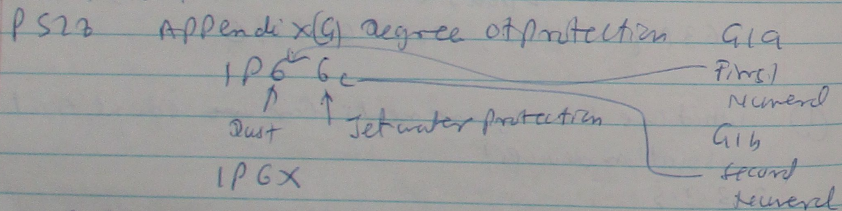 P523 Appendix(G) Degree of protection G1a
IP66
First
Numeral
Dust Jet water protection
G1b
Second
Numeral
IP6X